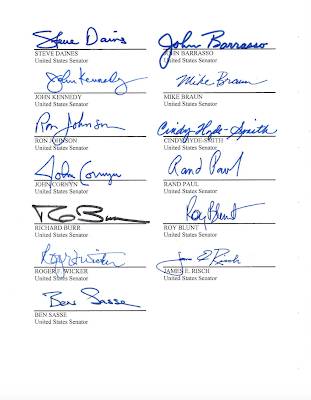 Steve Daines
STEVE DAINES
United States Senator
John Barrasso
JOHN BARRASSO
United States Senator
John Kennedy
JOHN KENNEDY
United States Senator
Mike Braun
MIKE BRAUN
United States Senator
Ron Johnson
RON JOHNSON
United States Senator
Cindy Hyde-Smith
CINDY HYDE-SMITH
United States Senator
John Cornyn
JOHN CORNYN
United States Senator
Rand Paul
RAND PAUL
United States Senator
RBurr
RICHARD BURR
United States Senator
Roy Blunt
ROY BLUNT
United States Senator
Roger F Wicker
ROGER F. WICKER
United States Senator
James E. Risch
JAMES E. RISCH
United States Senator
Ben Sasse
BEN SASSE
United States Senator